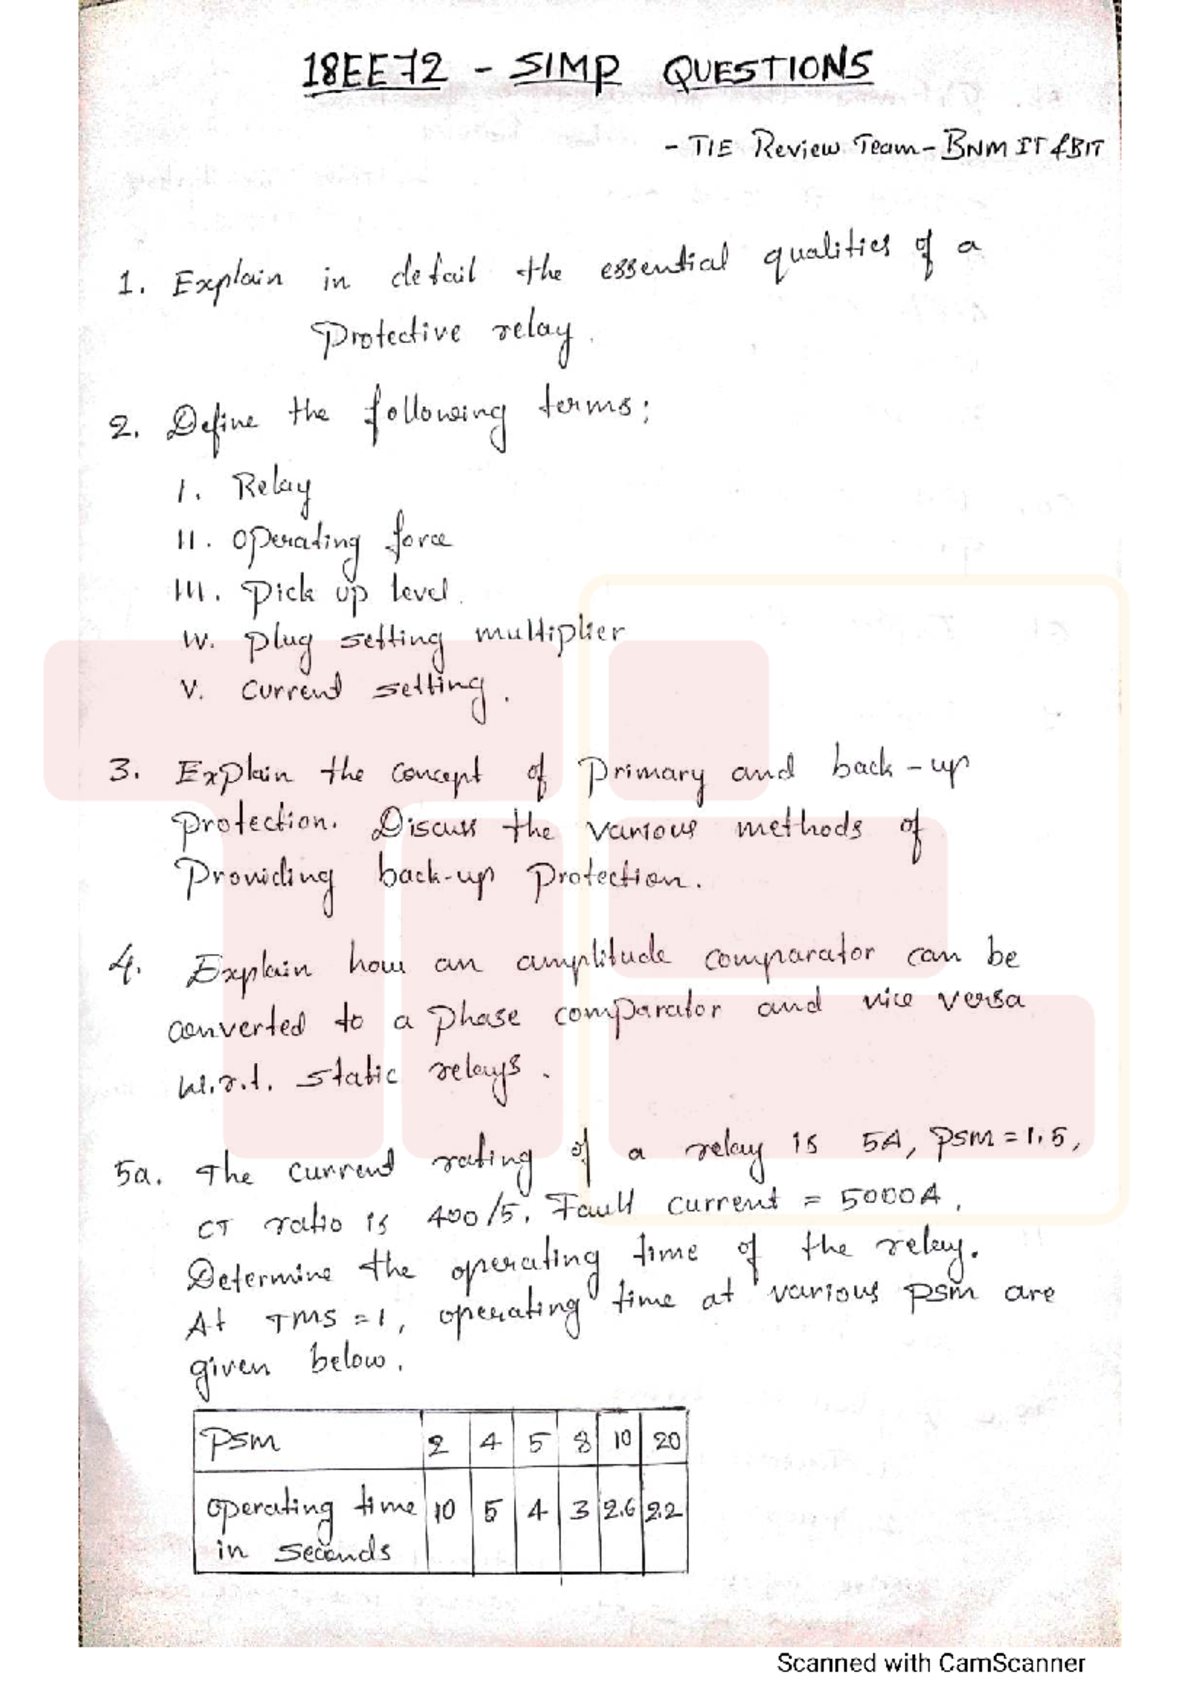 18EE72 - SIMP QUESTIONS
- TIE Review Team - BNMIT & BIT
1. Explain in detail the essential qualities of a
Protective relay.
2. Define the following terms:
I. Relay
II. Operating force
III. Pick up level.
IV. Plug setting multiplier
V. Current setting.
3. Explain the concept of Primary and back-up
Protection. Discuss the various methods of
Providing back-up Protection.
4. Explain how an amplitude comparator can be
converted to a Phase comparator and vice versa
w.r.t. static relays.
5a. The current rating of a relay is 5A, PSM = 1.5,
CT ratio is 400/5, Fault current = 5000A,
Determine the operating time of the relay.
At TMS = 1, operating time at various PSM are
given below.
PSM 2 4 5 8 10 20
Operating time 10 5 4 3 2.6 2.2
in seconds
Scanned with CamScanner